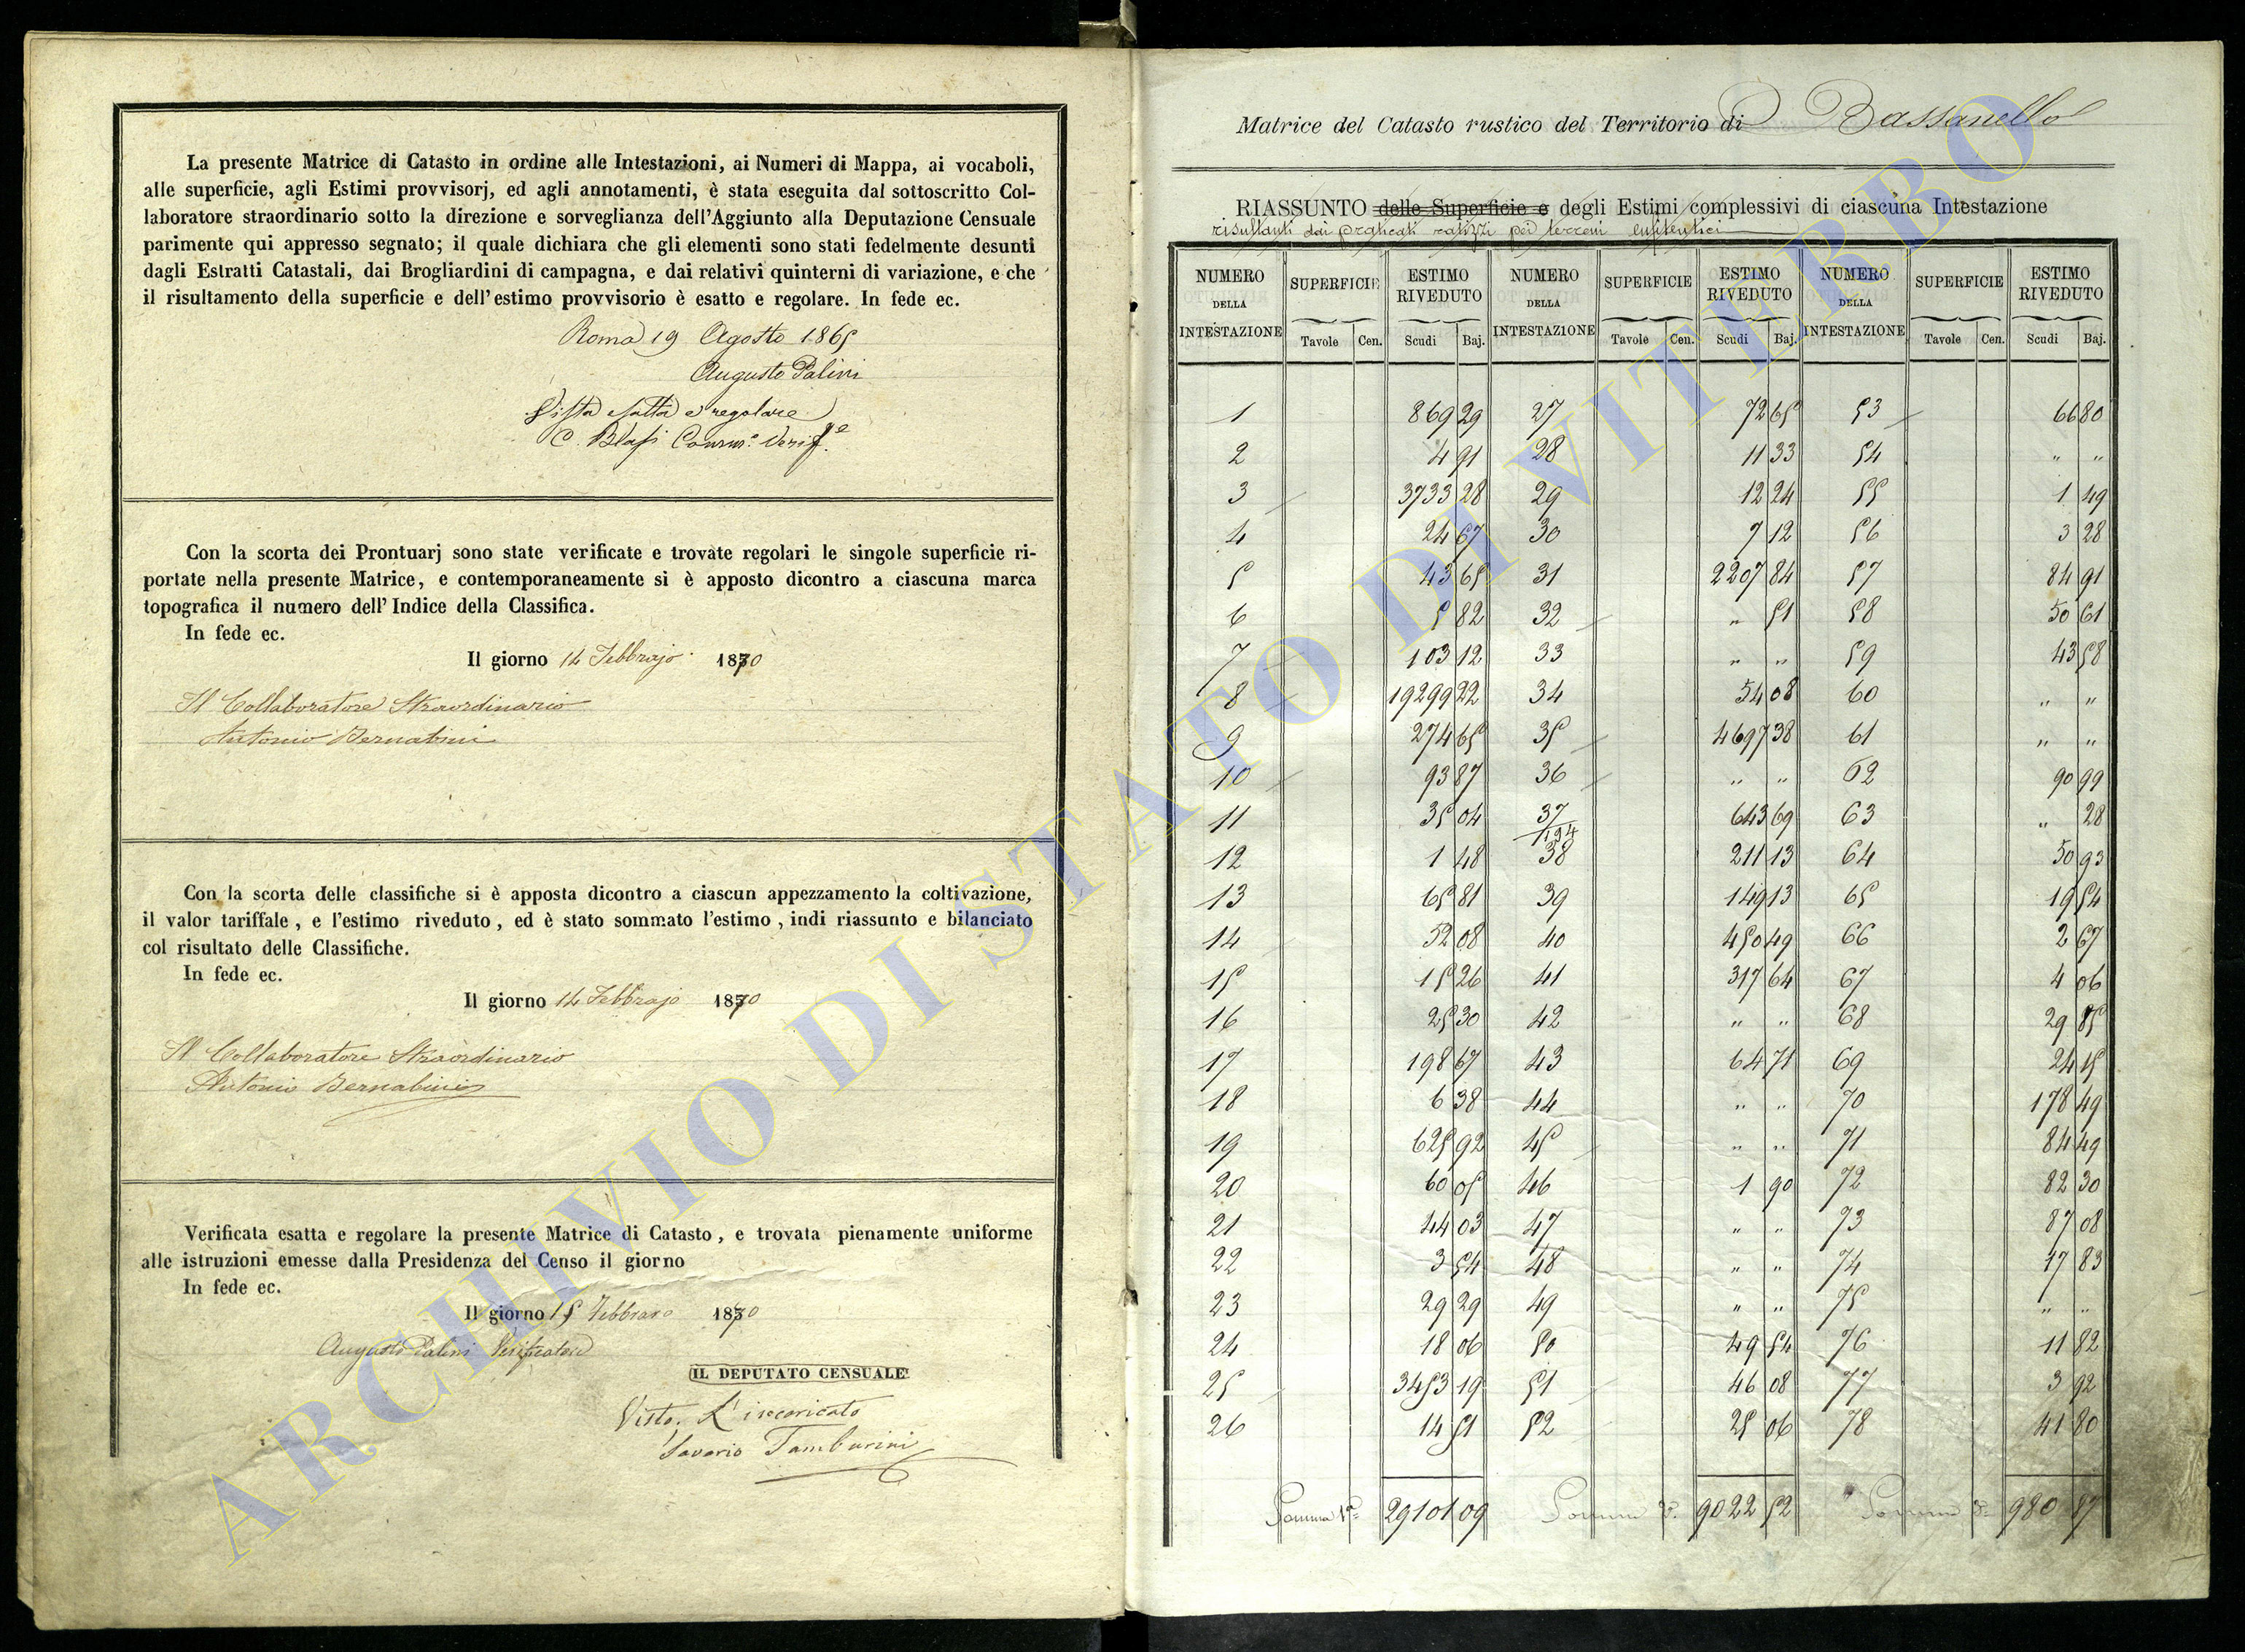 La presente Matrice di Catasto in ordine alle Intestazioni, ai Numeri di Mappa, ai vocaboli,
alle superficie, agli Estimi provvisorj, ed agli annotamenti, è stata eseguita dal sottoscritto Col-
laboratore straordinario sotto la direzione e sorveglianza dell'Aggiunto alla Deputazione Censuale
parimente qui appresso segnato; il quale dichiara che gli elementi sono stati fedelmente desunti
dagli Estratti Catastali, dai Brogliardini di campagna, e dai relativi quinterni di variazione, e che
il risultamento della superficie e dell'estimo provvisorio è esatto e regolare. In fede ec.
Roma 19 Agosto 1865
Augusto Palini
Vista esatta e regolare
C. Blasi Comm.º Verif.re
Con la scorta dei Prontuarj sono state verificate e trovate regolari le singole superficie ri-
portate nella presente Matrice, e contemporaneamente si è apposto dicontro a ciascuna marca
topografica il numero dell'Indice della Classifica.
In fede ec.
Il giorno 14 Febbrajo 1870
Il Collaboratore Straordinario
Antonio Bernabini
Con la scorta delle classifiche si è apposta dicontro a ciascun appezzamento la coltivazione,
il valor tariffale, e l'estimo riveduto, ed è stato sommato l'estimo, indi riassunto e bilanciato
col risultato delle Classifiche.
In fede ec.
Il giorno 14 Febbrajo 1870
Il Collaboratore Straordinario
Antonio Bernabini
Verificata esatta e regolare la presente Matrice di Catasto, e trovata pienamente uniforme
alle istruzioni emesse dalla Presidenza del Censo il giorno
In fede ec.
Il giorno 15 Febbraro 1870
Augusto Palini Verificatore
IL DEPUTATO CENSUALE
Visto, L'incaricato
Saverio Tamburini
Matrice del Catasto rustico del Territorio di Bassanello
RIASSUNTO delle Superficie e degli Estimi complessivi di ciascuna Intestazione
risultanti dai praticati ratizzi pei terreni enfiteutici
NUMERO DELLA INTESTAZIONE SUPERFICIE Tavole Cen. ESTIMO RIVEDUTO Scudi Baj. NUMERO DELLA INTESTAZIONE SUPERFICIE Tavole Cen. ESTIMO RIVEDUTO Scudi Baj. NUMERO DELLA INTESTAZIONE SUPERFICIE Tavole Cen. ESTIMO RIVEDUTO Scudi Baj.
1 869 29 27 72 65 53 66 80
2 4 91 28 11 33 54 " "
3 3733 28 29 12 24 55 1 49
4 24 67 30 7 12 56 3 28
5 43 65 31 2207 84 57 84 91
6 5 82 32 " 51 58 50 61
7 103 12 33 " " 59 43 58
8 19299 22 34 54 08 60 " "
9 274 65 35 4697 38 61 " "
10 93 87 36 " " 62 90 99
11 35 04 37/194 643 69 63 " 28
12 1 48 38 211 13 64 50 93
13 65 81 39 149 13 65 19 54
14 52 08 40 450 49 66 2 67
15 15 26 41 317 64 67 4 06
16 25 30 42 " " 68 29 85
17 198 67 43 64 71 69 24 15
18 6 38 44 " " 70 178 49
19 625 92 45 " " 71 84 49
20 60 05 46 1 90 72 82 30
21 44 03 47 " " 73 87 08
22 3 54 48 " " 74 17 83
23 29 29 49 " " 75 " "
24 18 06 50 49 54 76 11 82
25 3453 19 51 46 08 77 3 92
26 14 51 52 25 06 78 41 80
Somma 1ª 29101 09 Somma 2ª 9022 52 Somma 3ª 980 87
ARCHIVIO DI STATO DI VITERBO